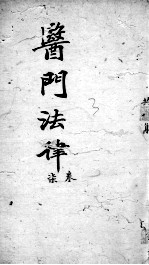 醫門法律
卷柒